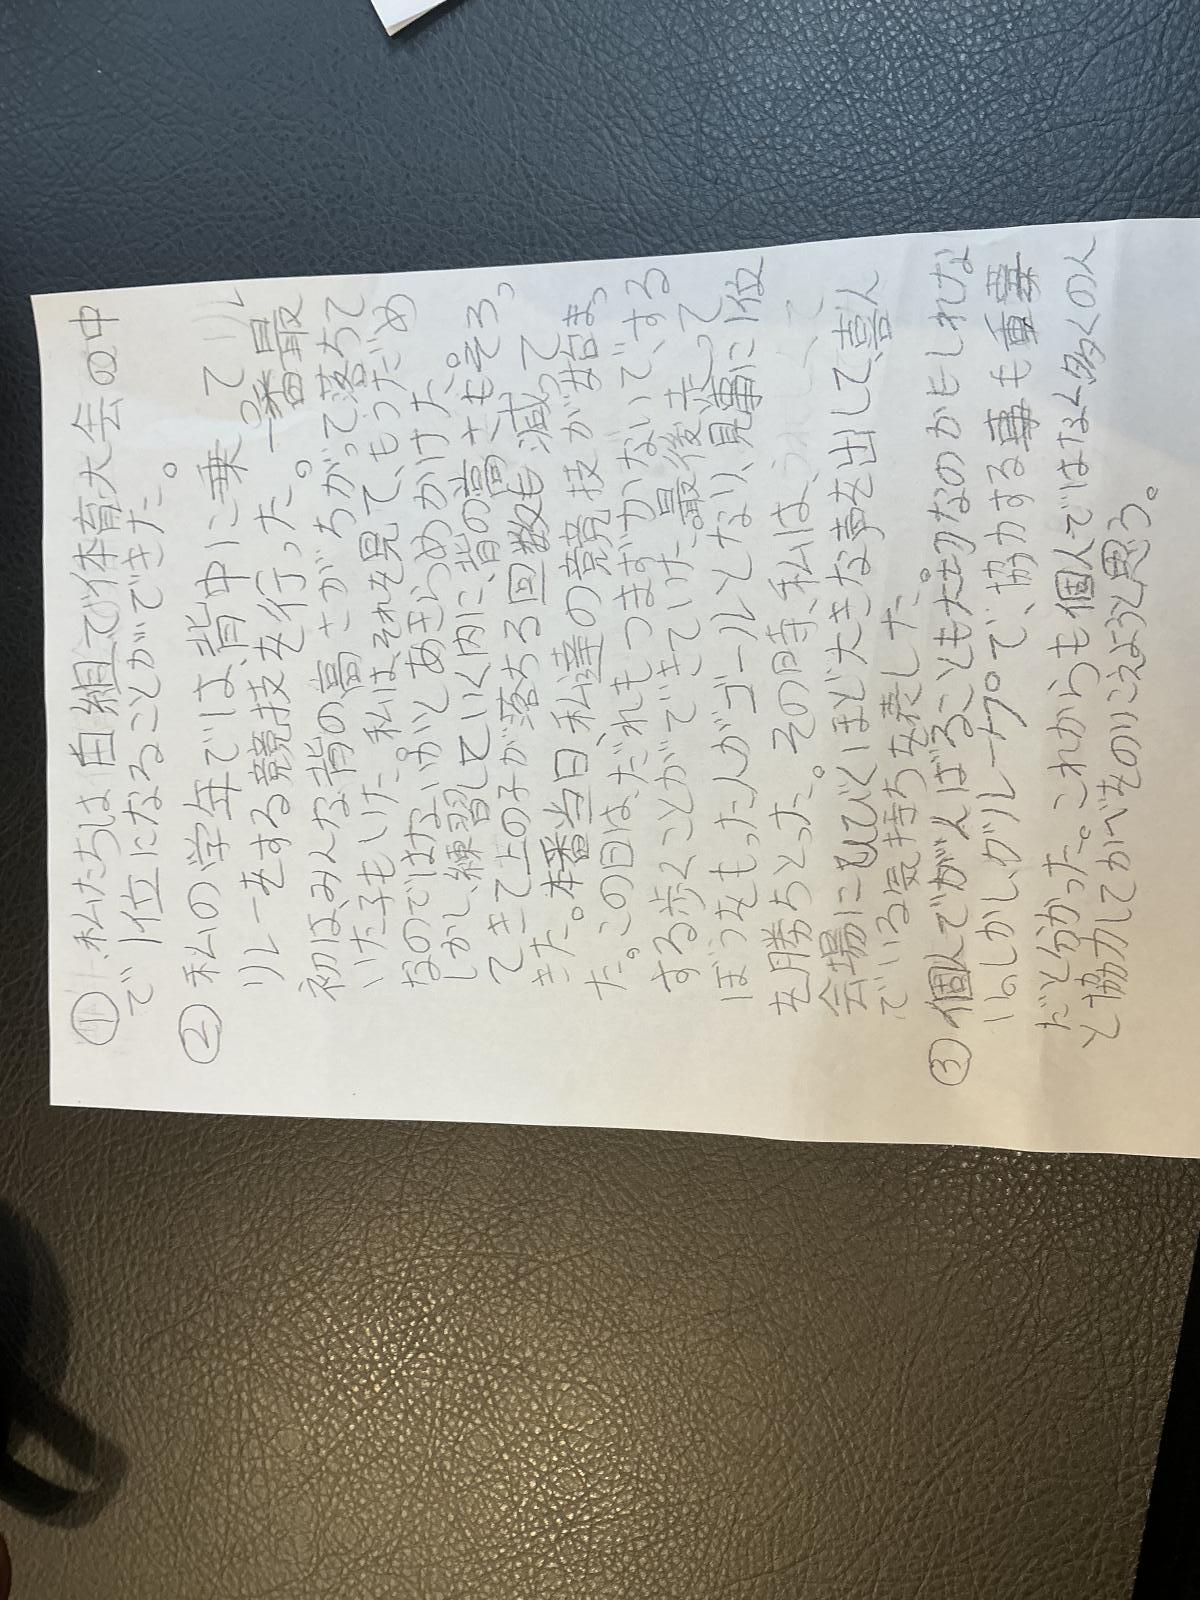 ① 私たちは白組で体育大会の中
で1位になることができた。
② 私の学年では、背中に乗ってリレ
リレーをする競技を行った。一番最
初は、みんな背の高さがちがって落ちて
いた子もいた。私は、それを見て、もうだめ
なのではないかとあきらめかけた。
しかし、練習していく内に、背の高さもそろっ
てきて上の子が落ちる回数も減って
きた。本番当日私達の競技が始まっ
た。この日は、だれもつまずかないで、する
する歩くことができていた。最後走って
ぼうをもった人がゴールとなり、見事に1位
を勝ちとった。その時、私は、うれしくて
会場にひびくほど大きな声を出して、喜ん
でいる気持ちを表した。
③ 個人でがんばることも大切なのかもしれな
い。しかし、グループで、協力する事も重要
だと分かった。これからも個人ではなく多くの人
と協力してかべをのりこえようと思う。